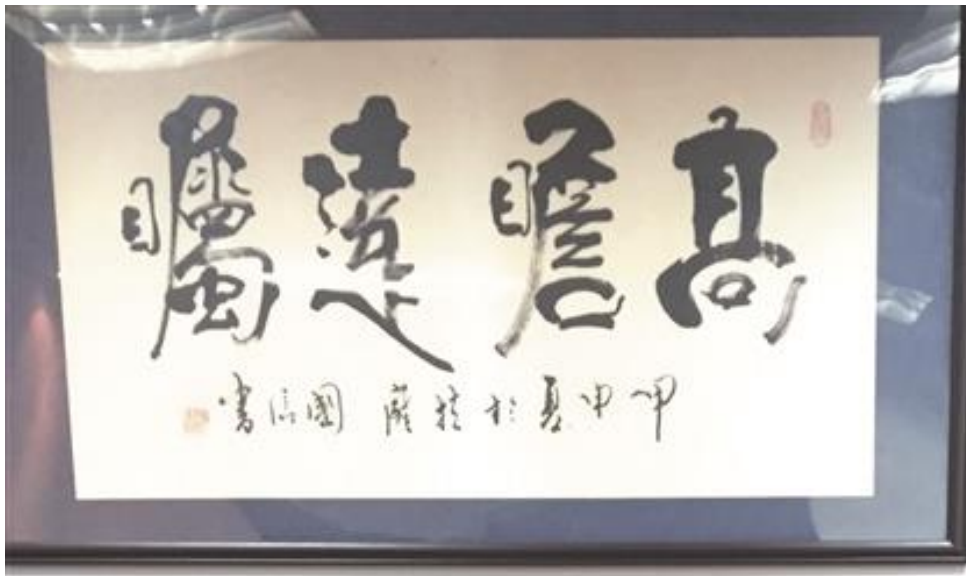 高瞻遠矚
甲申夏於 國信書